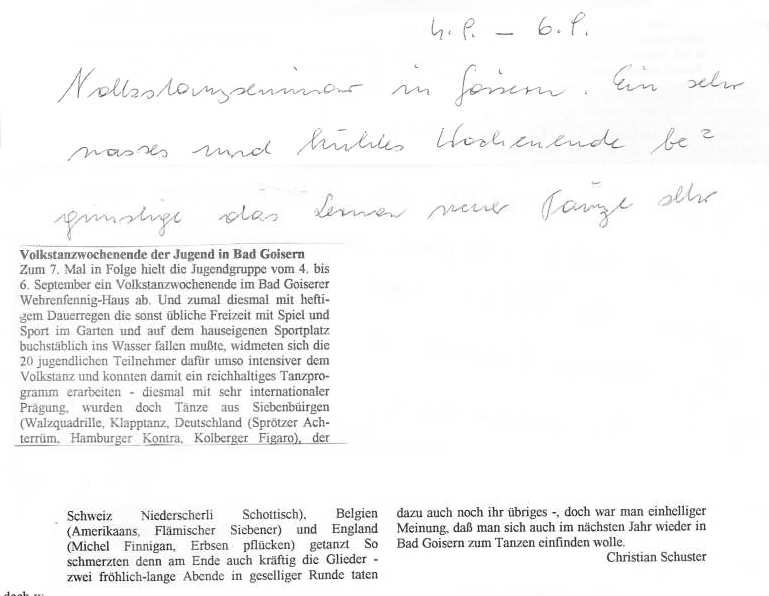 4.9. – 6.9.
Volkstanzseminar in Goisern. Ein sehr
nasses und kühles Wochenende be=
günstige das Lernen neuer Tänze sehr
Volkstanzwochenende der Jugend in Bad Goisern
Zum 7. Mal in Folge hielt die Jugendgruppe vom 4. bis
6. September ein Volkstanzwochenende im Bad Goiserer
Wehrenfennig-Haus ab. Und zumal diesmal mit hefti-
gem Dauerregen die sonst übliche Freizeit mit Spiel und
Sport im Garten und auf dem hauseigenen Sportplatz
buchstäblich ins Wasser fallen mußte, widmeten sich die
20 jugendlichen Teilnehmer dafür umso intensiver dem
Volkstanz und konnten damit ein reichhaltiges Tanzpro-
gramm erarbeiten - diesmal mit sehr internationaler
Prägung, wurden doch Tänze aus Siebenbüirgen
(Walzquadrille, Klapptanz, Deutschland (Sprötzer Ach-
terrüm, Hamburger Kontra, Kolberger Figaro), der
Schweiz Niederscherli Schottisch), Belgien
(Amerikaans, Flämischer Siebener) und England
(Michel Finnigan, Erbsen pflücken) getanzt So
schmerzten denn am Ende auch kräftig die Glieder -
zwei fröhlich-lange Abende in geselliger Runde taten
dazu auch noch ihr übriges -, doch war man einhelliger
Meinung, daß man sich auch im nächsten Jahr wieder in
Bad Goisern zum Tanzen einfinden wolle.
Christian Schuster